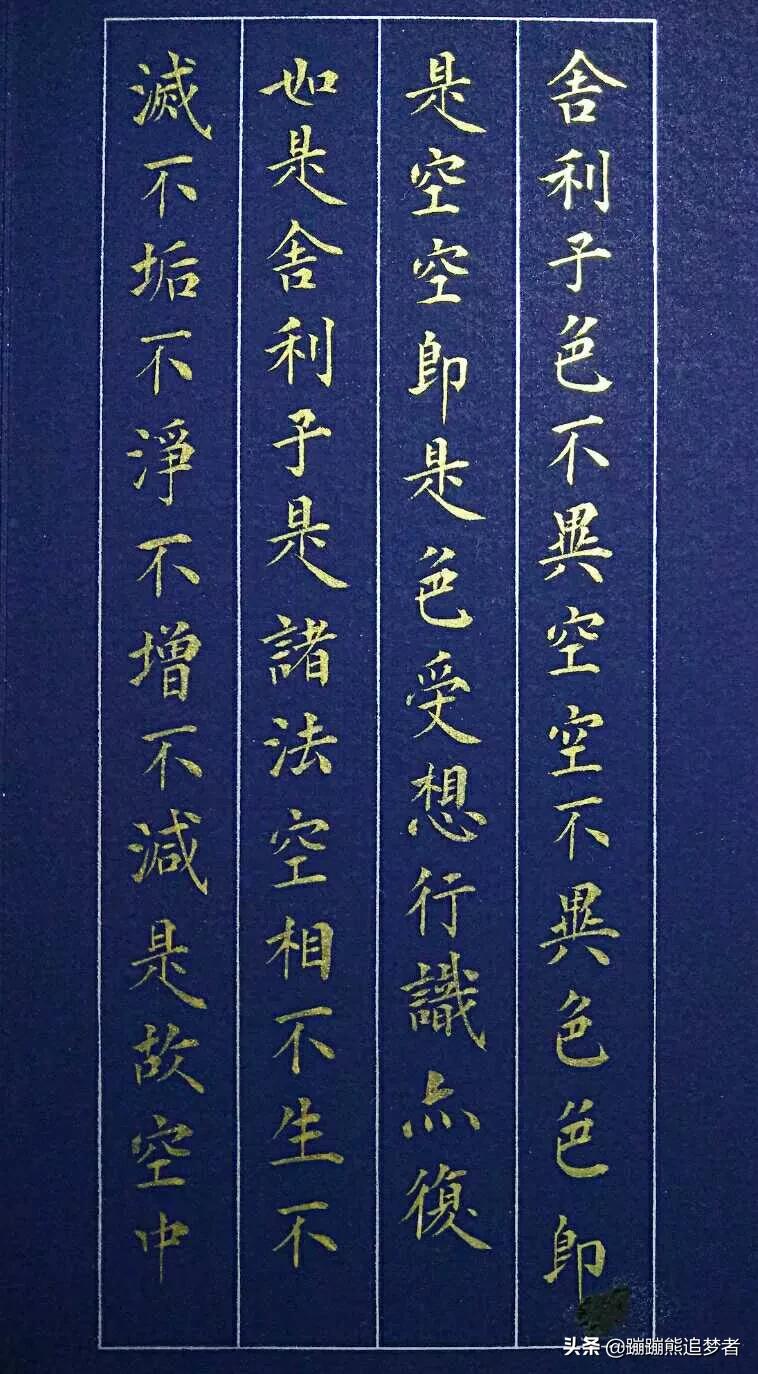 舍利子色不異空空不異色色即
是空空即是色受想行識亦復
如是舍利子是諸法空相不生不
滅不垢不淨不增不減是故空中
头条 @蹦蹦熊追梦者